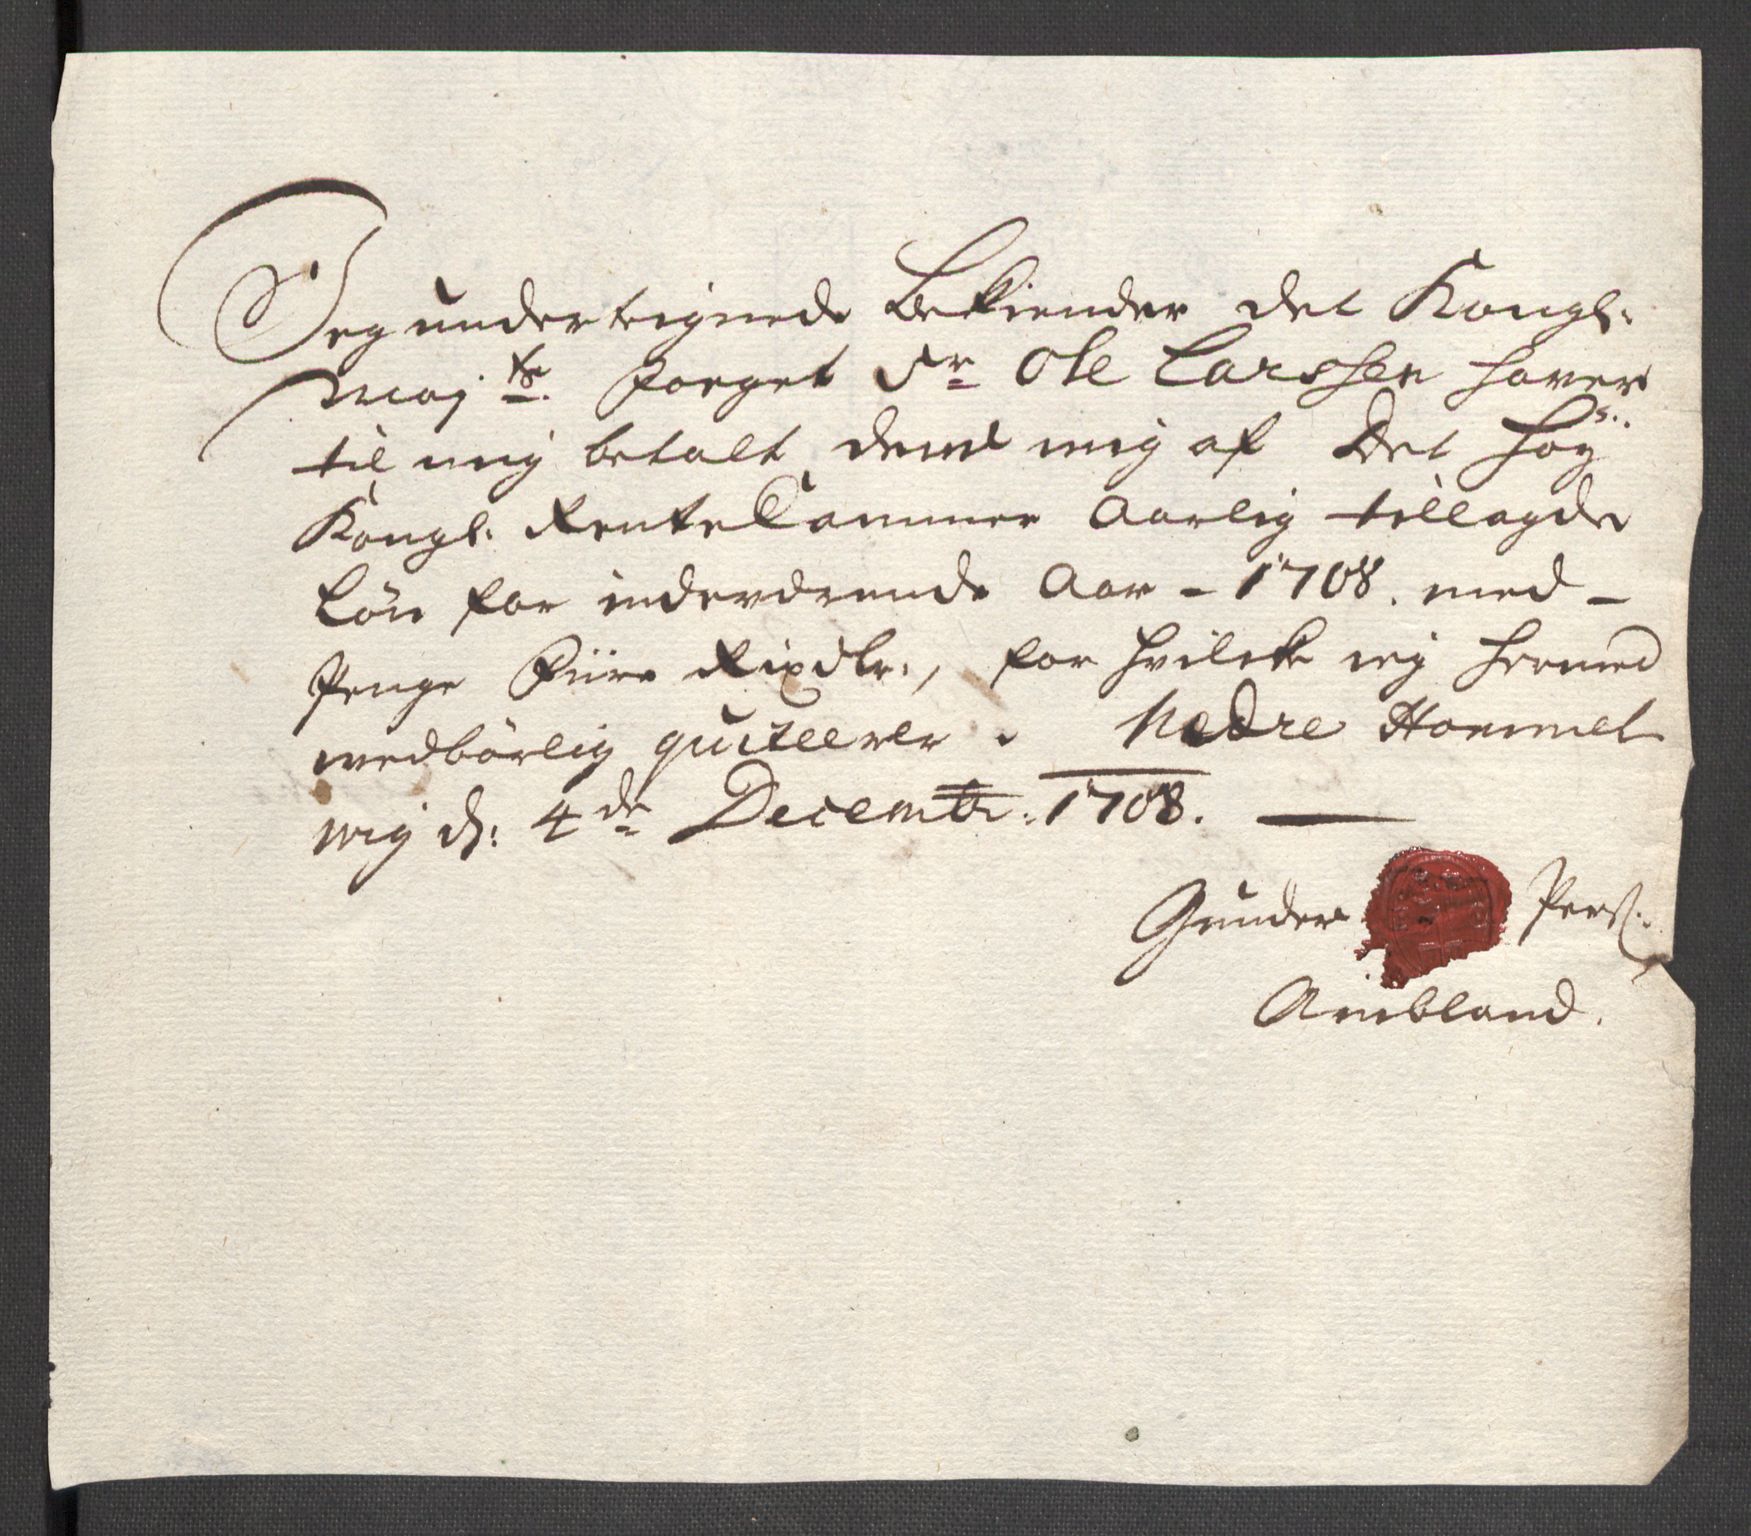 Jeg underteignede Bekiender det Kongl:
Maj:ts Foeget Sr Ole Larssen haver
til mig betalt dend mig af Det höy
Kongl: RenteKammer Aarlig tillagde
Lön for inderverende Aar - 1708. med -
Penge Fiire Rixdlr:, for hvilcke ieg hermed
vedbörlig quiteerer. Nedre Hommel
wig d: 4de Decembr: 1708.
Gunder Pers:
Aunbland.